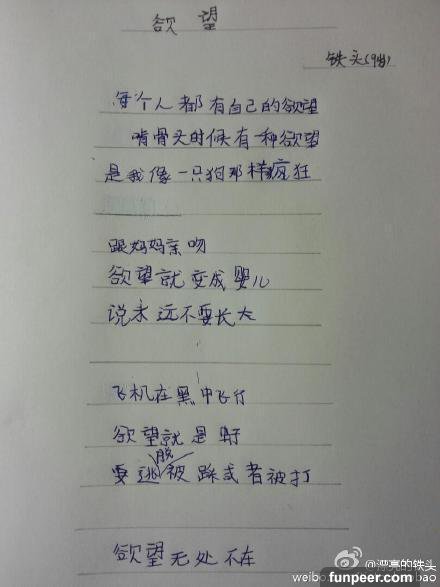 欲望
铁头(9岁)
每个人都有自己的欲望
啃骨头时候有一种欲望
是我像一只狗那样疯狂
跟妈妈亲吻
欲望就变成婴儿
说永远不要长大
飞机在黑中飞行
欲望就是蚜
要逃脱被踩或者被打
欲望无处不在
@漂亮的铁头
funpeer.com